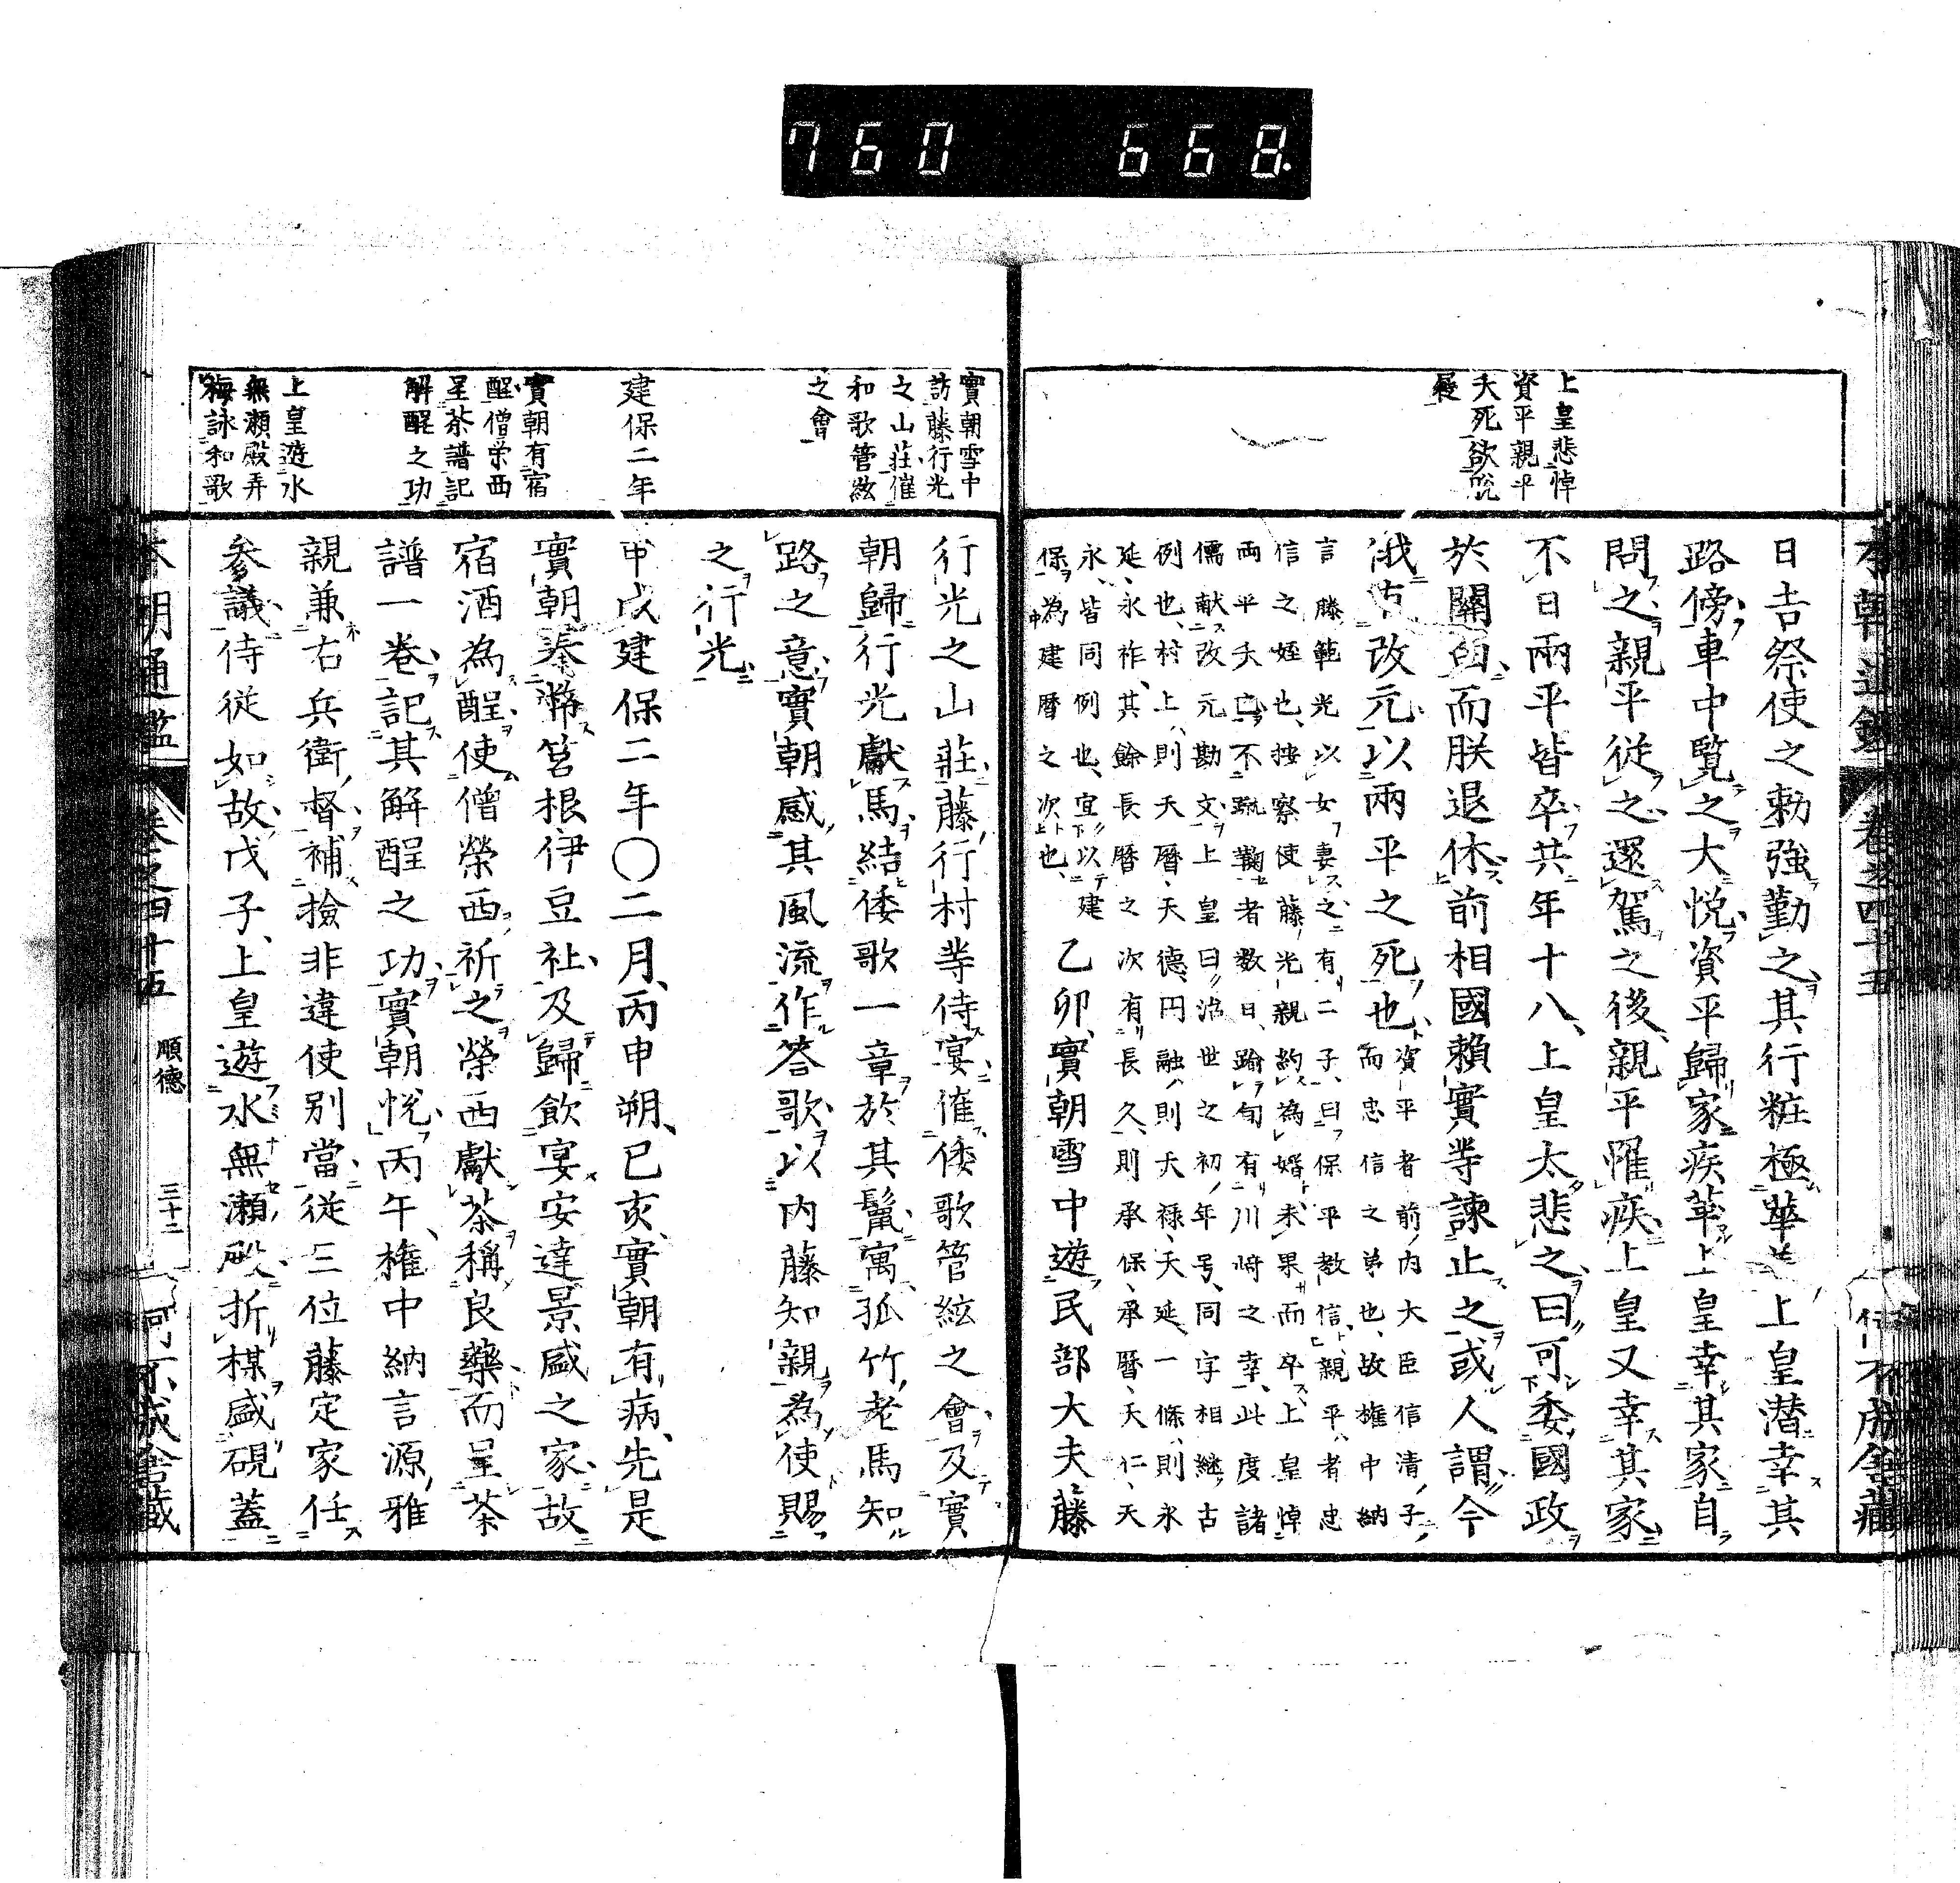 760 668.
上皇悲悼
資平親平
夭死欲脱
屣
日吉祭使之勅強勤之其行粧極華 上皇潜幸其
路傍車中覧之大悦資平歸家疾革上皇幸其家自
問之親平從之還駕之後親平罹疾上皇又幸其家
不日兩平皆卒共年十八上皇太悲之曰可委國政
於關白而朕退休前相國賴實等諫止之或人謂今
俄 改元以兩平之死也
資平者前内大臣信清子
而忠信之弟也故權中納
言藤範光以女妻之有二子曰保平教信親平者忠
信之姪也按察使藤光親約為婚未果而卒上皇悼
兩平夭亡不蹴鞠者数日踰旬有川﨑之幸此度諸
儒献改元勘文上皇曰治世之初年号同字相継古
例也村上則天暦天德円融則天禄天延一條則永
延永祚其餘長暦之次有長久則承保承暦天仁天
永皆同例也宜以建
保為建暦之次也
乙卯實朝雪中遊民部大夫藤
實朝雪中
訪藤行光
之山莊催
和歌管絃
之會
行光之山莊藤行村等侍宴催倭歌管絃之會及實
朝歸行光獻馬結倭歌一章於其鬣寓孤竹老馬知
路之意實朝感其風流作答歌以内藤知親為使賜
之行光
建保二年
甲戌建保二年〇二月丙申朔己亥實朝有病先是
實朝有宿
酲僧栄西
呈茶譜記
解酲之功
實朝奉幣筥根伊豆社及歸飲宴安達景盛之家故
宿酒為酲使僧榮西祈之榮西獻茶稱良藥而呈茶
譜一卷記其解酲之功實朝悅丙午權中納言源雅
親兼右兵衛督補撿非違使別當從三位藤定家任
上皇遊水
無瀬殿弄
梅詠和歌
参議侍從如故戊子上皇遊水無瀬殿折楳盛硯蓋
本朝通鑑 卷之四十五 順德 三十二